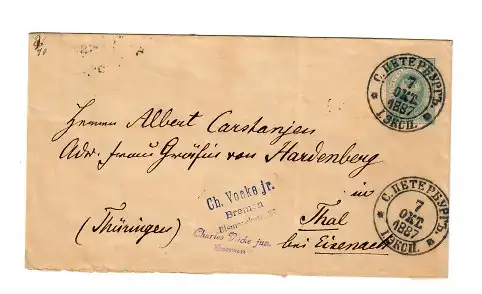 С. ПЕТЕРБУРГЪ
7
ОКТ.
1887
1. ЭКСП.
Herrn Albert Carstanjen
Adr. Frau Gräfin von Hardenberg
in
Thal
bei Eisenach
(Thüringen)
Ch. Vocke jr.
Bremen
Charles
jun.
С. ПЕТЕРБУРГЪ
7
ОКТ.
1887
1. ЭКСП.